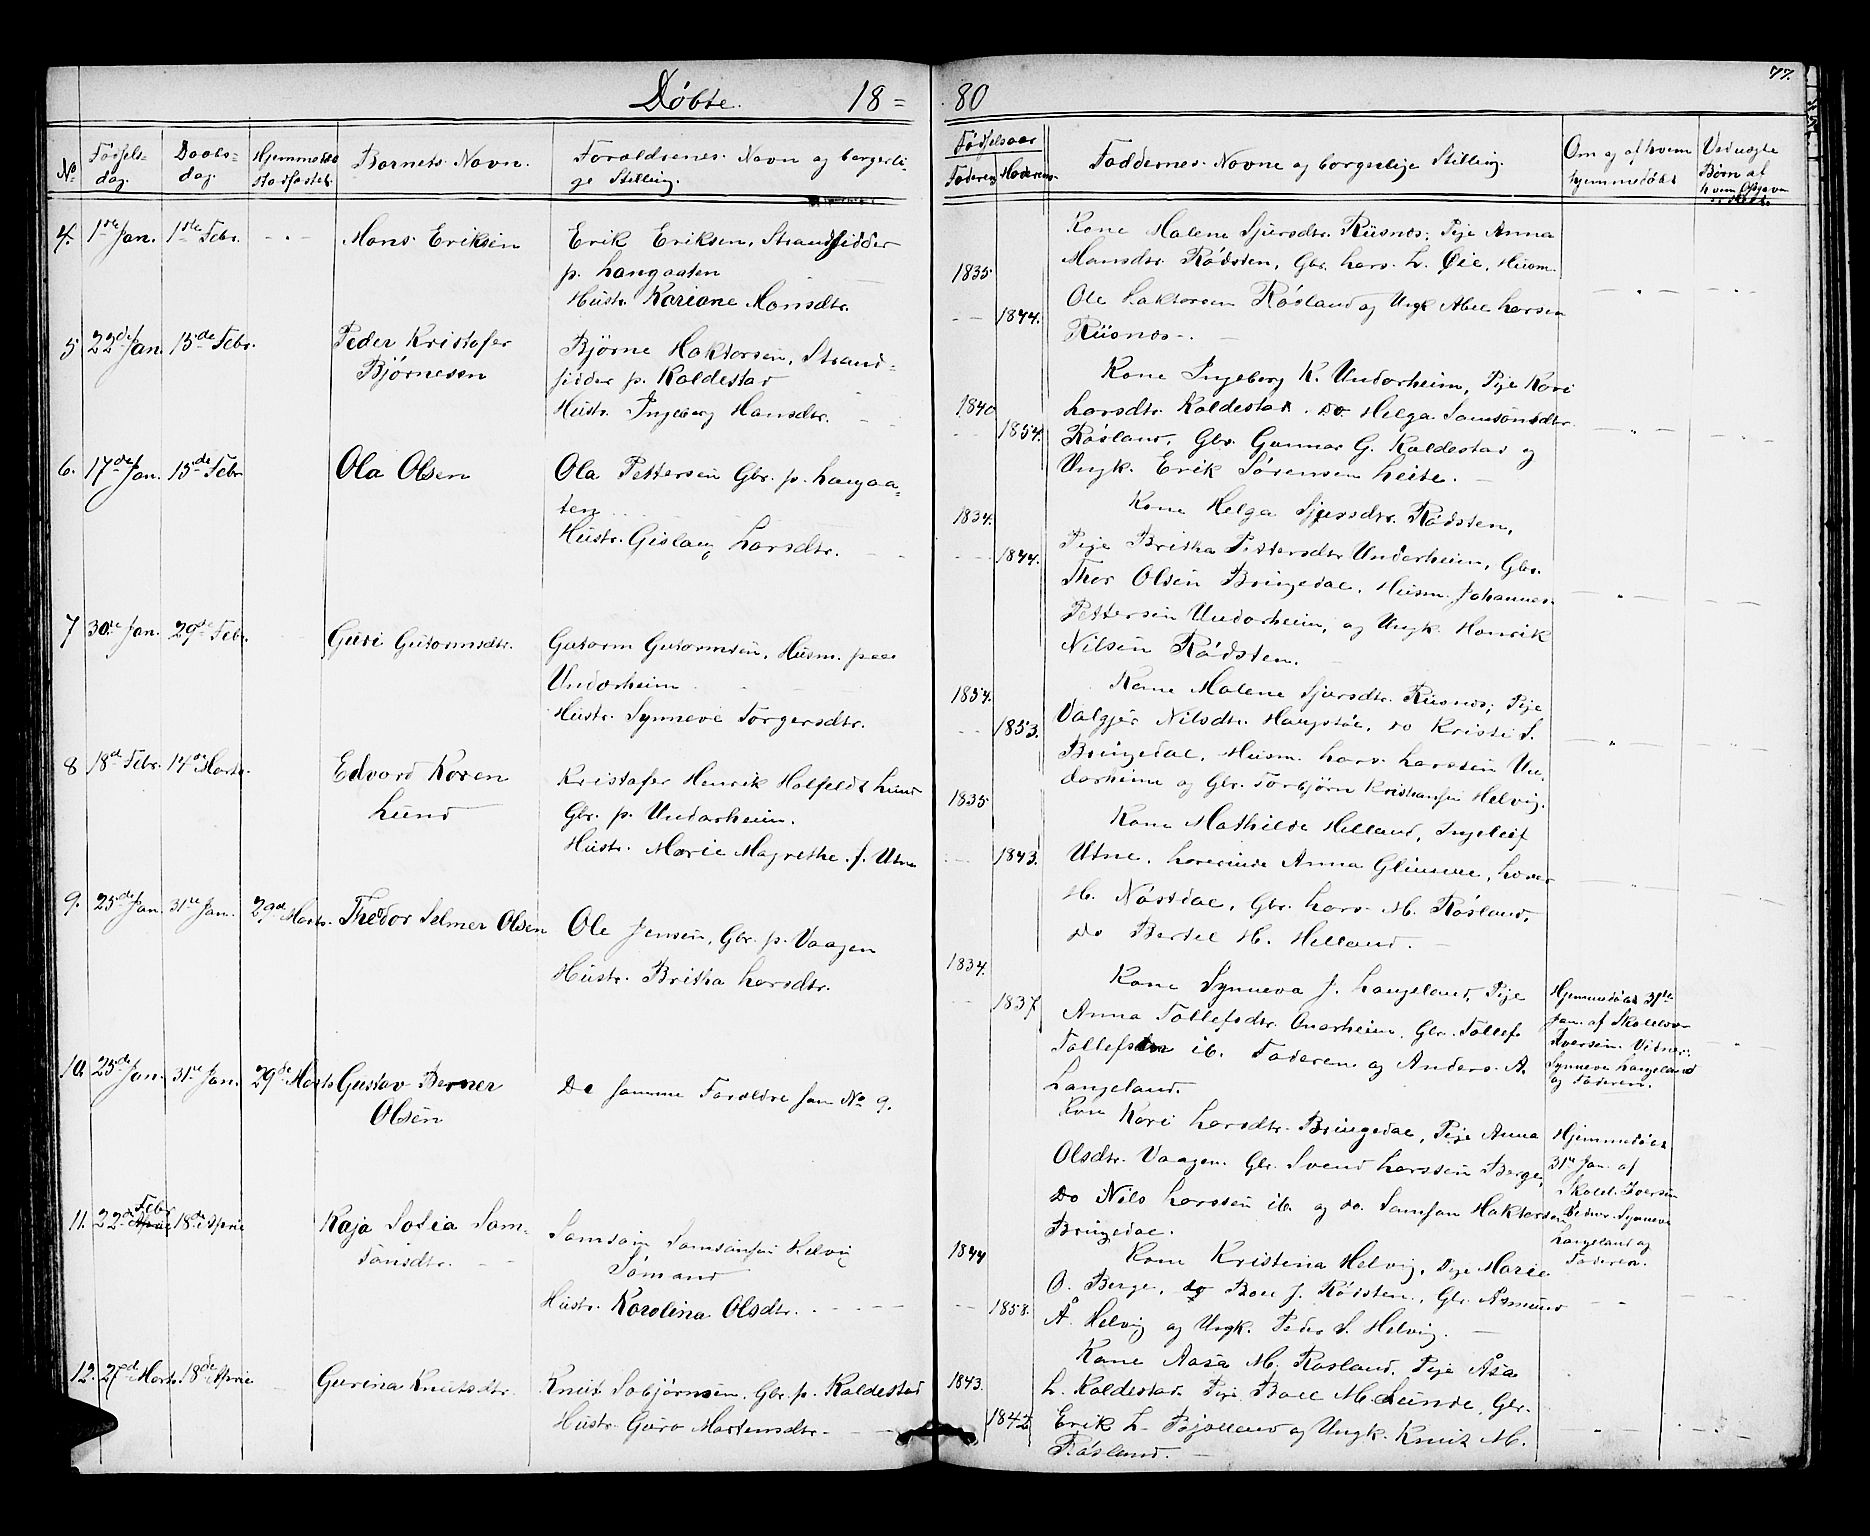 77.
Døbte. 18 = 80
No
Fødsels-
dag.
Daabs-
dag.
Hjemmedøbt
Stadfæstet.
Barnets Navn.
Forældrenes Navn og borgerli-
ge Stilling.
Fødselsaar
Faderens Moderens
Faddernes Navne og borgerlige Stilling.
Om og af hvem
hjemmedøbt
Børn af
4. 1ste Jan. 1ste Febr. Mons Eriksen
Erik Eriksen, Strandsidder
p. Langaaten
Hustr. Kariane Monsdtr.
1835
1844.
Kone Malene Sjursdtr. Risnes; Pige Anna
Hansdtr. Rødsten, Gbr. Lars L. Øie, Husm.
Ole Haktorsen Røsland og Ungk. Abel Larsen
Risnes.
5 22de Jan. 15de Febr. Peder Kristofer
Bjørnesen
Bjørne Haktorsen, Strand-
sidder p. Kaldestad
Hustr. Ingeborg Hansdtr.
1840
1854.
Kone Ingeborg K. Undarheim, Pige Kari
Larsdtr. Kaldestad. do Helga Samsonsdtr.
Røsland, Gbr. Gunnar G. Kaldestad og
Ungk. Erik Sørensen Leite.
6. 17de Jan. 15de Febr Ola Olsen
Ola Pettersen Gbr. p. Langaa-
ten
Hustr. Gislaug Larsdtr.
1834.
1844.
Kone Helga Sjursdtr. Rødsten,
Pige Britha Pettersdtr. Undarheim, Gbr.
Thor Olsen Bringedal, Husm. Johannes
Pettersen Undarheim, og Ungk. Henrik
Nilsen Rødsten.
7 30te Jan. 29de Febr. Guri Guttormsdtr.
Guttorm Guttormsen, Husm. paa
Undarheim
Hustr. Synneve Torgersdtr.
1854.
1853.
Kone Malene Sjursdtr. Risnes; Pige
Valgjer Nilsdtr. Haugstøe, do Kristi S.
Bringedal, Husm. Lars Larssen Un-
darheim og Gbr. Torbjørn Kristiansen Helvig.
8 18de Febr. 17de Marts. Edvard Koren
Lund
Kristofer Henrik Holfeldt Lund
Gbr. p. Undarheim.
Hustr. Marie Magrethe f. Utne
1835
1843.
Kone Mathilde Helland, Ingeleif
Utne, Lærerinde Anna
H. Nøstdal, Gbr. Lars M. Røsland,
do Bertel H. Helland.
9. 25de Jan. 31te Jan. 29de Marts. Theodor Selmer Olsen
Ole Jensen, Gbr. p. Vaagen
Hustr. Britha Larsdtr.
1834.
1837
Kone Synneva J. Langeland, Pige
Anna Tollefsdtr. Onarheim, Gbr. Tollef
Tollefsen ib. Faderen og Anders A.
Langeland.
Hjemmedøbt 31te
Jan. af Skolelær
Iversen. Vidner:
Synneva Langeland
og Faderen.
10. 25de Jan. 31te Jan. 29de Marts Gustav Berner
Olsen
De samme Forældre som No 9.
Kone Kari Larsdtr. Bringedal, Pige Anna
Olsdtr. Vaagen. Gbr. Svend Larssen Berge,
Do Nils Larssen ib. og do. Samson Haktorsen
Bringedal.
Hjemmedøbt
31te Jan. af
Skolel. Iversen
Vidner. Synneva
Langeland og
Faderen.
11. 22de Febr 18de April Kaja Sofia Sam-
sonsdtr.
Samson Samsonsen Helvig
Sømand
Hustr. Karolina Olsdtr.
1844
1858.
Kone Kristina Helvig, Pige Marie
O. Berge, do Boel J. Rødsten, Gbr. Asmund
Å. Helvig og Ungk. Peder S. Helvig.
12. 27de Marts. 18de April Gurina Knutsdtr.
Knut Torbjørnsen, Gbr. p. Kaldestad
Hustr. Guro Mortensdtr.
1843.
1842
Kone Aasa M. Røsland, Pige Åsa
L. Kaldestad. Pige Boel M. Lunde, Gbr.
Erik L. Bjølland og Ungk. Knut M.
Røsland.